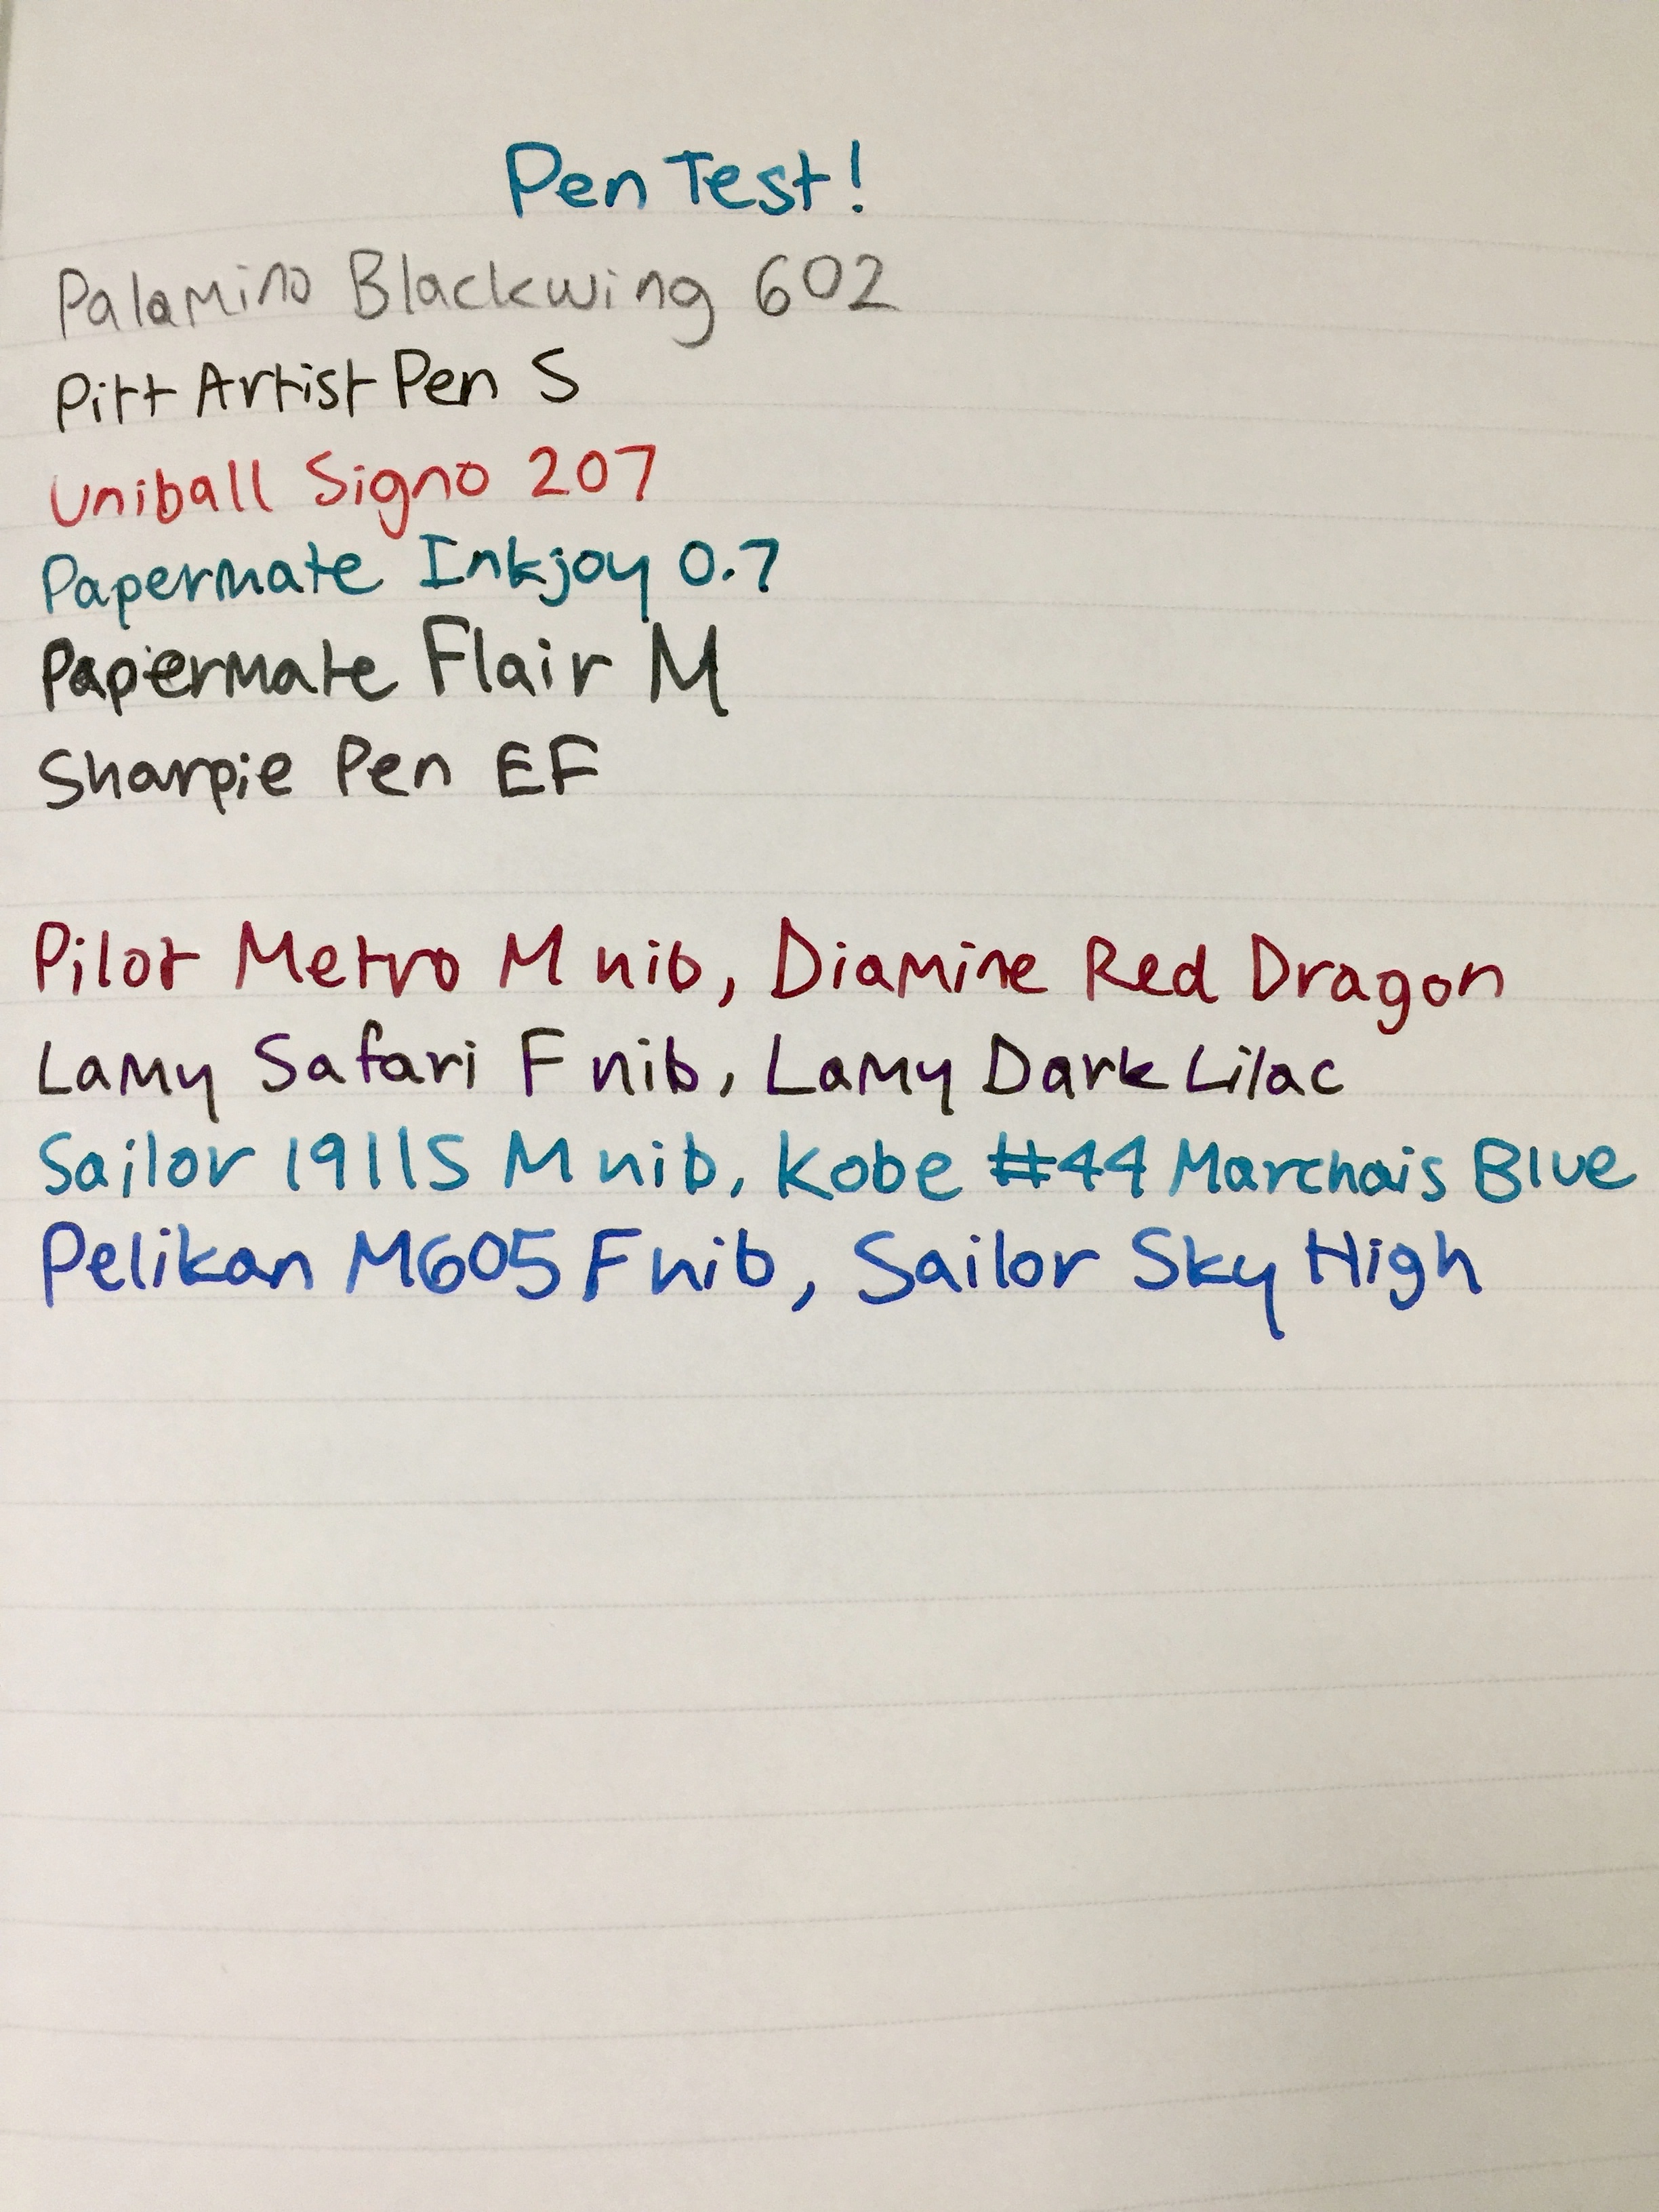 Pen Test!
Palamino Blackwing 602
Pitt Artist Pen S
Uniball Signo 207
Papermate Inkjoy 0.7
Papermate Flair M
Sharpie Pen EF
Pilot Metro M nib, Diamine Red Dragon
Lamy Safari F nib, Lamy Dark Lilac
Sailor 1911S M nib, Kobe #44 Marchais Blue
Pelikan M605 F nib, Sailor Sky High